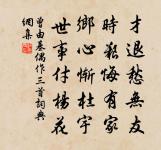 才退愁無友
時艱悔有家
鄉心慚杜宇
世事付楊花
曾由基偶作三首詞典
網集